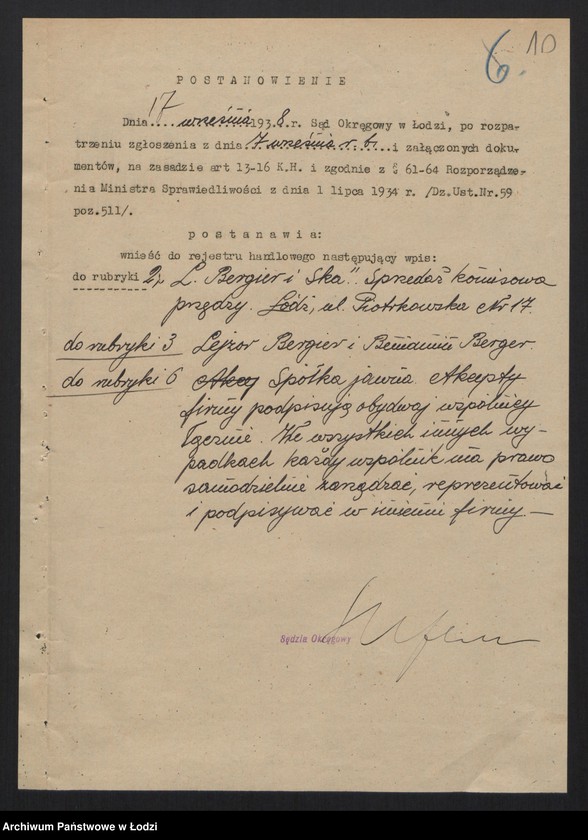 6. 10
POSTANOWIENIE
Dnia 17 września 1938 r. Sąd Okręgowy w Łodzi, po rozpa-
trzeniu zgłoszenia z dnia 7 września r.b. i załączonych doku-
mentów, na zasadzie art 13-16 K.H. i zgodnie z § 61-64 Rozporządze-
nia Ministra Sprawiedliwości z dnia 1 lipca 1934 r. /Dz.Ust.Nr.59
poz.511/.
postanawia:
wnieść do rejestru handlowego następujący wpis:
do rubryki 2) L. Bergier i Ska". Sprzedaż komisowa
przędzy. Łódź, ul. Piotrkowska Nr 17.
do rubryki 3 Lejzor Bergier i Beniamin Berger.
do rubryki 6 Spółka jawna. Akcepty
firmy podpisują obydwaj wspólnicy
łącznie. We wszystkich innych wy-
padkach każdy wspólnik ma prawo
samodzielnie zarządzać, reprezentować
i podpisywać w imieniu firmy —
Sędzia Okręgowy
Archiwum Państwowe w Łodzi